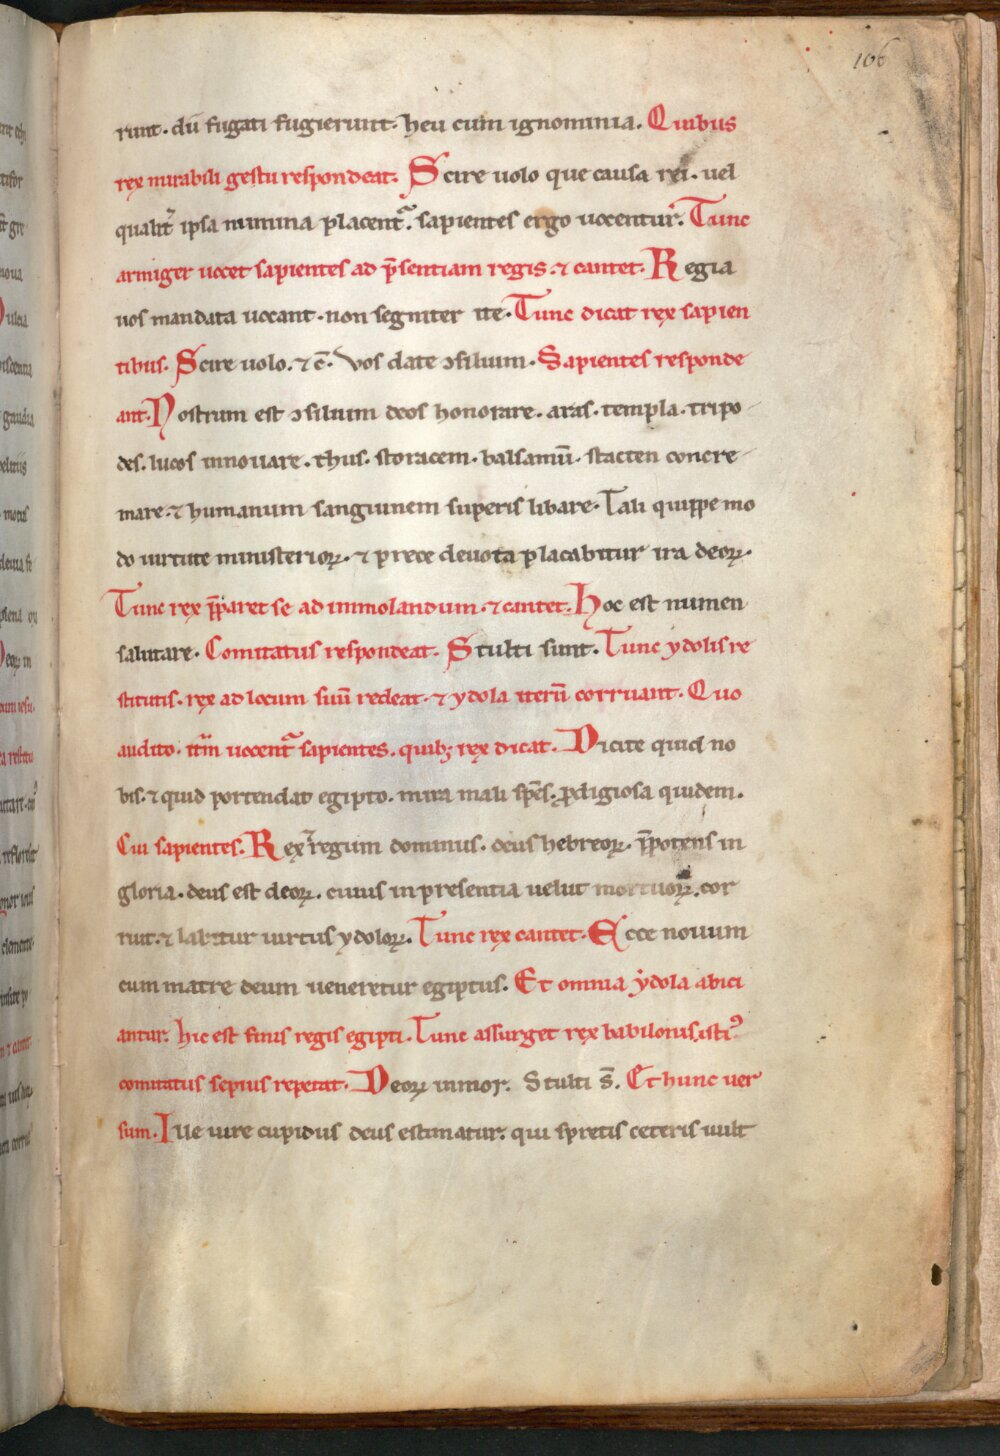 106
runt. dū fugati fugierunt. heu cum ignominia. Quibus
rex mirabili gestu respondeat. Scire uolo que causa rei. uel
qualit᷑ ipsa numina placent᷑. sapientes ergo uocentur. Tunc
armiger uocet sapientes ad p̄sentiam regis. ⁊ cantet. Regia
uos mandata uocant. non segniter ite. Tunc dicat rex sapien
tibus. Scire uolo. ⁊ c̄. Vos date ↄsilium. Sapientes responde
ant. Nostrum est ↄsilium deos honorare. aras. templa. tripo
des. lucos innouare. thus. storacem. balsamū. stacten concre
mare. ⁊ humanum sanguinem superis libare. Tali quippe mo
do uirtute ministerioꝝ. ⁊ prece deuota placabitur ira deoꝝ.
Tunc rex p̄paret se ad immolandum. ⁊ cantet. Hoc est numen
salutare. Comitatus respondeat. Stulti sunt. Tunc ydolis re
stitutis. rex ad locum suū redeat. ⁊ ydola iterū corruant. Quo
audito. itm̄ uocent᷑ sapientes. quibꝫ rex dicat. Dicite quid no
bis. ⁊ quid portendat egipto. mira mali sp̄es. ꝓdigiosa quidem.
Cui sapientes. Rex regum dominus. deus hebreoꝝ. p̄potens in
gloria. deus est deoꝝ. cuius in presentia uelut mortuoꝝ. cor
ruit. ⁊ labitur uirtus ydoloꝝ. Tunc rex cantet. Ecce nouum
cum matre deum ueneretur egiptus. Et omnia ydola abici
antur. hic est finis regis egipti. Tunc assurget rex babilonis. istiꝰ
comitatus sepius repetat. Deoꝝ inmor. Stulti s̄. Et hunc uer
sum. Ille iure cupidus deus estimatur. qui spretis ceteris uult